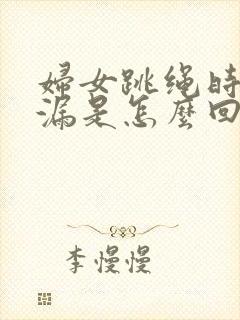 婦女跳绳時
漏是怎麼回
李慢慢